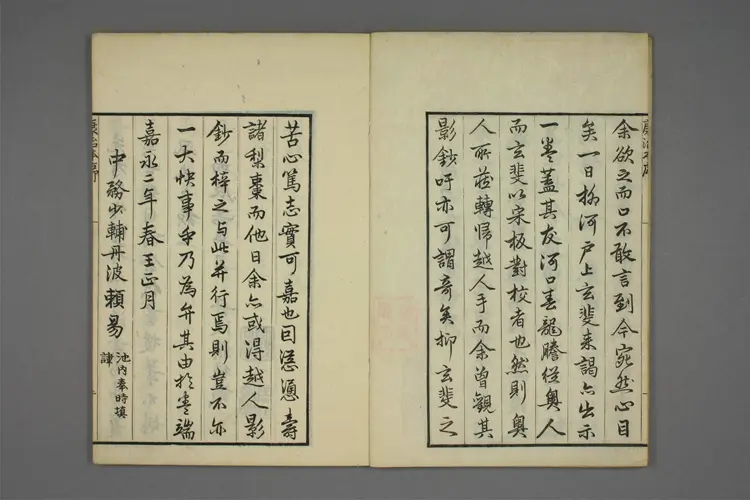 余欲之而口不敢言到今宛然心目
矣一日柳河戸上玄斐来謁亦出示
一巻蓋其友河口春龍謄従奥人
而玄斐以宋板對校者也然則奥
人所蔵轉帰越人手而余曽観其
影鈔吁亦可謂奇矣抑玄斐之
苦心篤志實可嘉也因慫慂壽
諸梨棗而他日余亦或得越人影
鈔而梓之与此并行焉則豈不亦
一大快事乎乃為弁其由於巻端
嘉永二年春王正月
中務少輔丹波頼易
池内奉時填
諱